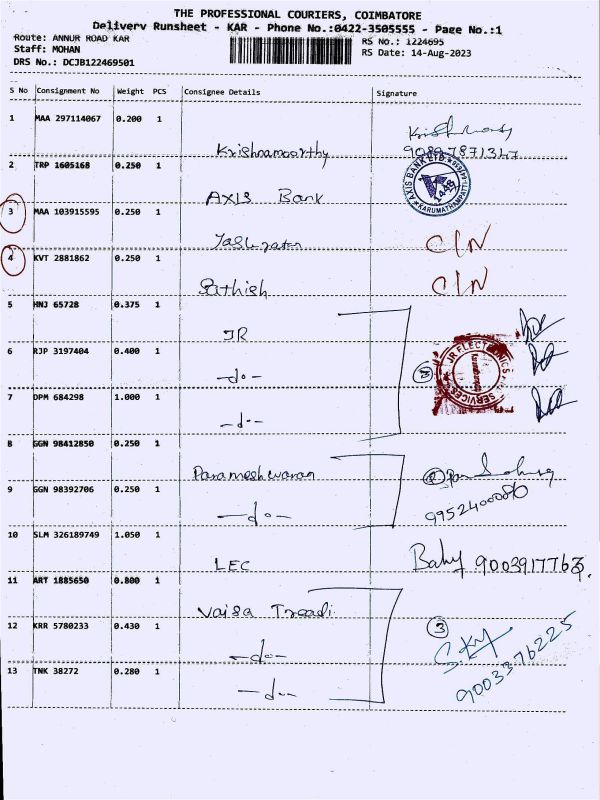 THE PROFESSIONAL COURIERS, COIMBATORE
Delivery Runsheet - KAR - Phone No.:0422-3505555 - Page No.:1
Route: ANNUR ROAD KAR
Staff: MOHAN
DRS No.: DCJB122469501
RS No.: 1224695
RS Date: 14-Aug-2023
S No Consignment No Weight PCS Consignee Details Signature
1 MAA 297114067 0.200 1
Krishnamoorthy
2 TRP 1605168 0.250 1
AXIS BANK LTD.
1448
KARUMATHAMPATTI
AXIS Bank
3 MAA 103915595 0.250 1
CIN
4 KVT 2881862 0.250 1
Sathish CIN
5 HNJ 65728 0.375 1
JR
6 RJP 3197404 0.400 1
JR ELECTRONICS
SERVICES
-do- 3
7 DPM 684298 1.000 1
-do-
8 GGN 98412850 0.250 1
Parameshwaran 2
9 GGN 98392706 0.250 1
-do-
10 SLM 326189749 1.050 1
LEC Baby 9003917763
11 ART 1885650 0.800 1
12 KRR 5780233 0.430 1
3
-do- 9003376225
13 TNK 38272 0.280 1
-do-